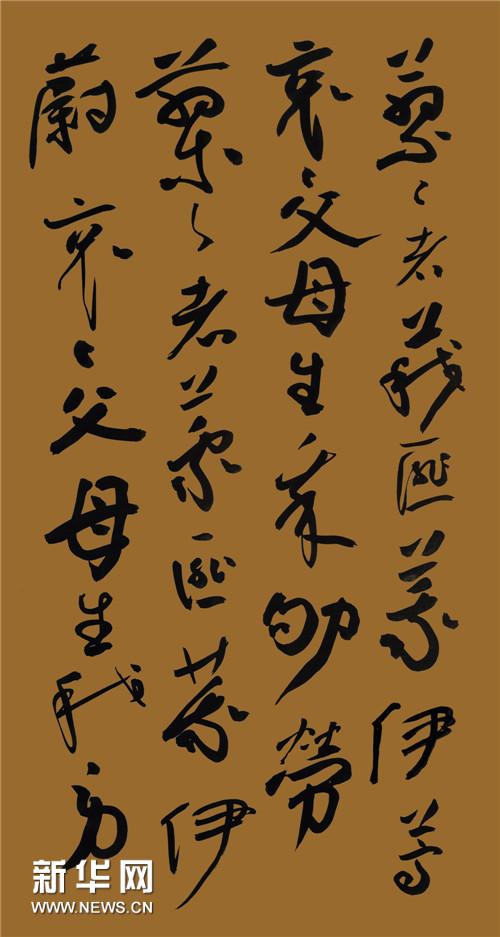 蓼々者莪匪莪伊蒿
哀々父母生我劬勞
蓼々者莪匪莪伊
蔚哀々父母生我
新华网
WWW.NEWS.CN